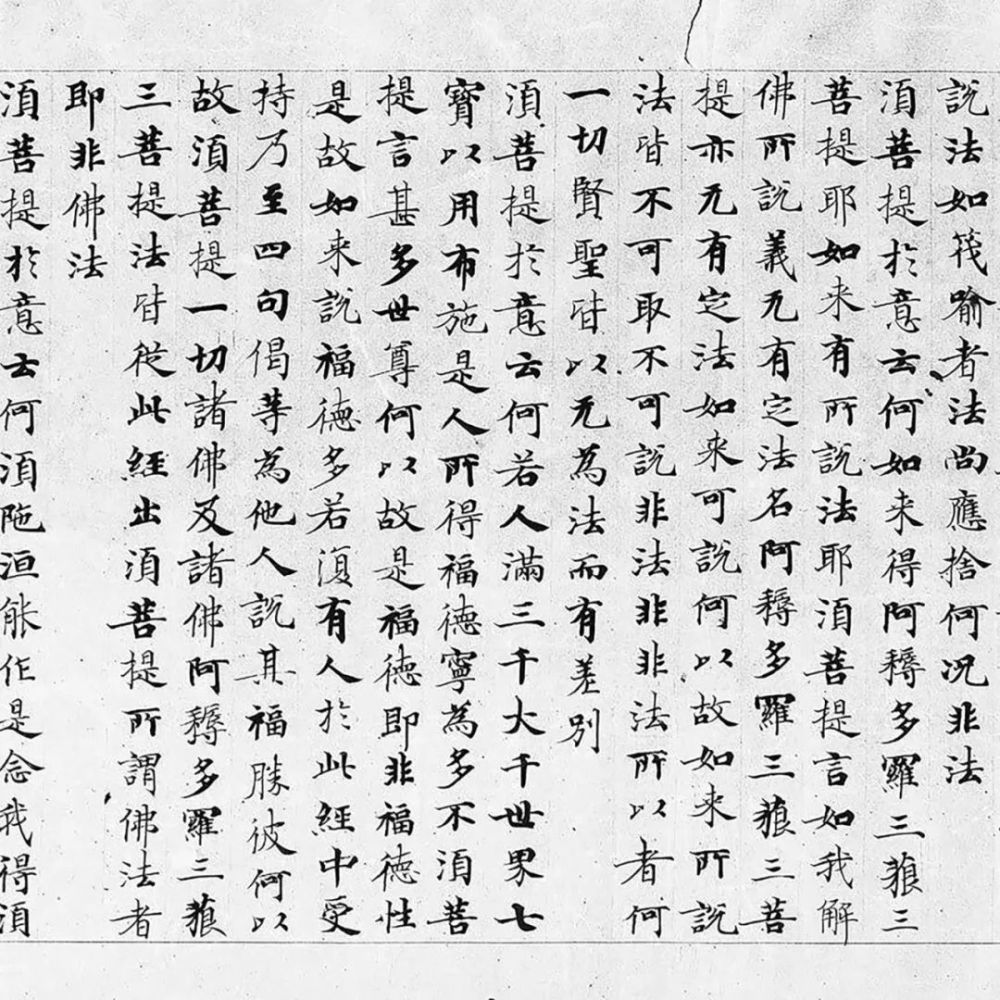 說法如筏喻者法尚應捨何況非法
湏菩提於意云何如来得阿耨多羅三藐三
菩提耶如来有所說法耶湏菩提言如我解
佛所說義无有定法名阿耨多羅三藐三菩
提亦无有定法如来可說何以故如来所說
法皆不可取不可說非法非非法所以者何
一切賢聖皆以无為法而有差別
湏菩提於意云何若人滿三千大千世界七
寶以用布施是人所得福德寧為多不湏菩
提言甚多世尊何以故是福德即非福德性
是故如来說福德多若復有人於此經中受
持乃至四句偈等為他人說其福勝彼何以
故湏菩提一切諸佛及諸佛阿耨多羅三藐
三菩提法皆從此經出湏菩提所謂佛法者
即非佛法
湏菩提於意云何湏陁洹能作是念我得湏